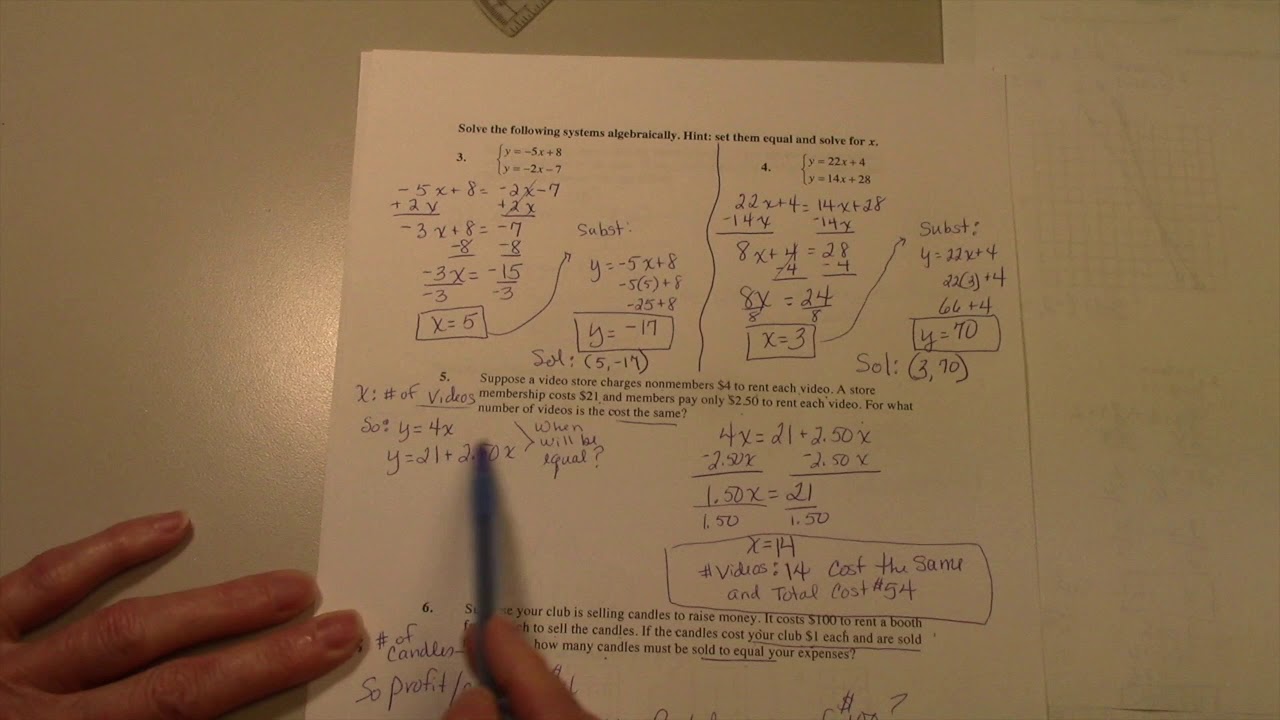 Solve the following systems algebraically. Hint: set them equal and solve for x.
3. y = -5x + 8
y = -2x - 7
-5x + 8 = -2x - 7
+2x +2x
-3x + 8 = -7
-8 -8
-3x = -15
-3 -3
x = 5
Subst:
y = -5x + 8
-5(5) + 8
-25 + 8
y = -17
Sol: (5, -17)
4. y = 22x + 4
y = 14x + 28
22x + 4 = 14x + 28
-14x -14x
8x + 4 = 28
-4 -4
8x = 24
8 8
x = 3
Subst:
y = 22x + 4
22(3) + 4
66 + 4
y = 70
Sol: (3, 70)
5. Suppose a video store charges nonmembers $4 to rent each video. A store
membership costs $21 and members pay only $2.50 to rent each video. For what
number of videos is the cost the same?
X: # of Videos
So: y = 4x
y = 21 + 2.50x
When
will be
equal?
4x = 21 + 2.50x
-2.50x -2.50x
1.50x = 21
1.50 1.50
x = 14
# Videos: 14 Cost the Same
and Total Cost $54
6. your club is selling candles to raise money. It costs $100 to rent a booth
to sell the candles. If the candles cost your club $1 each and are sold
how many candles must be sold to equal your expenses?
# of
Candles
So profit/
$
?